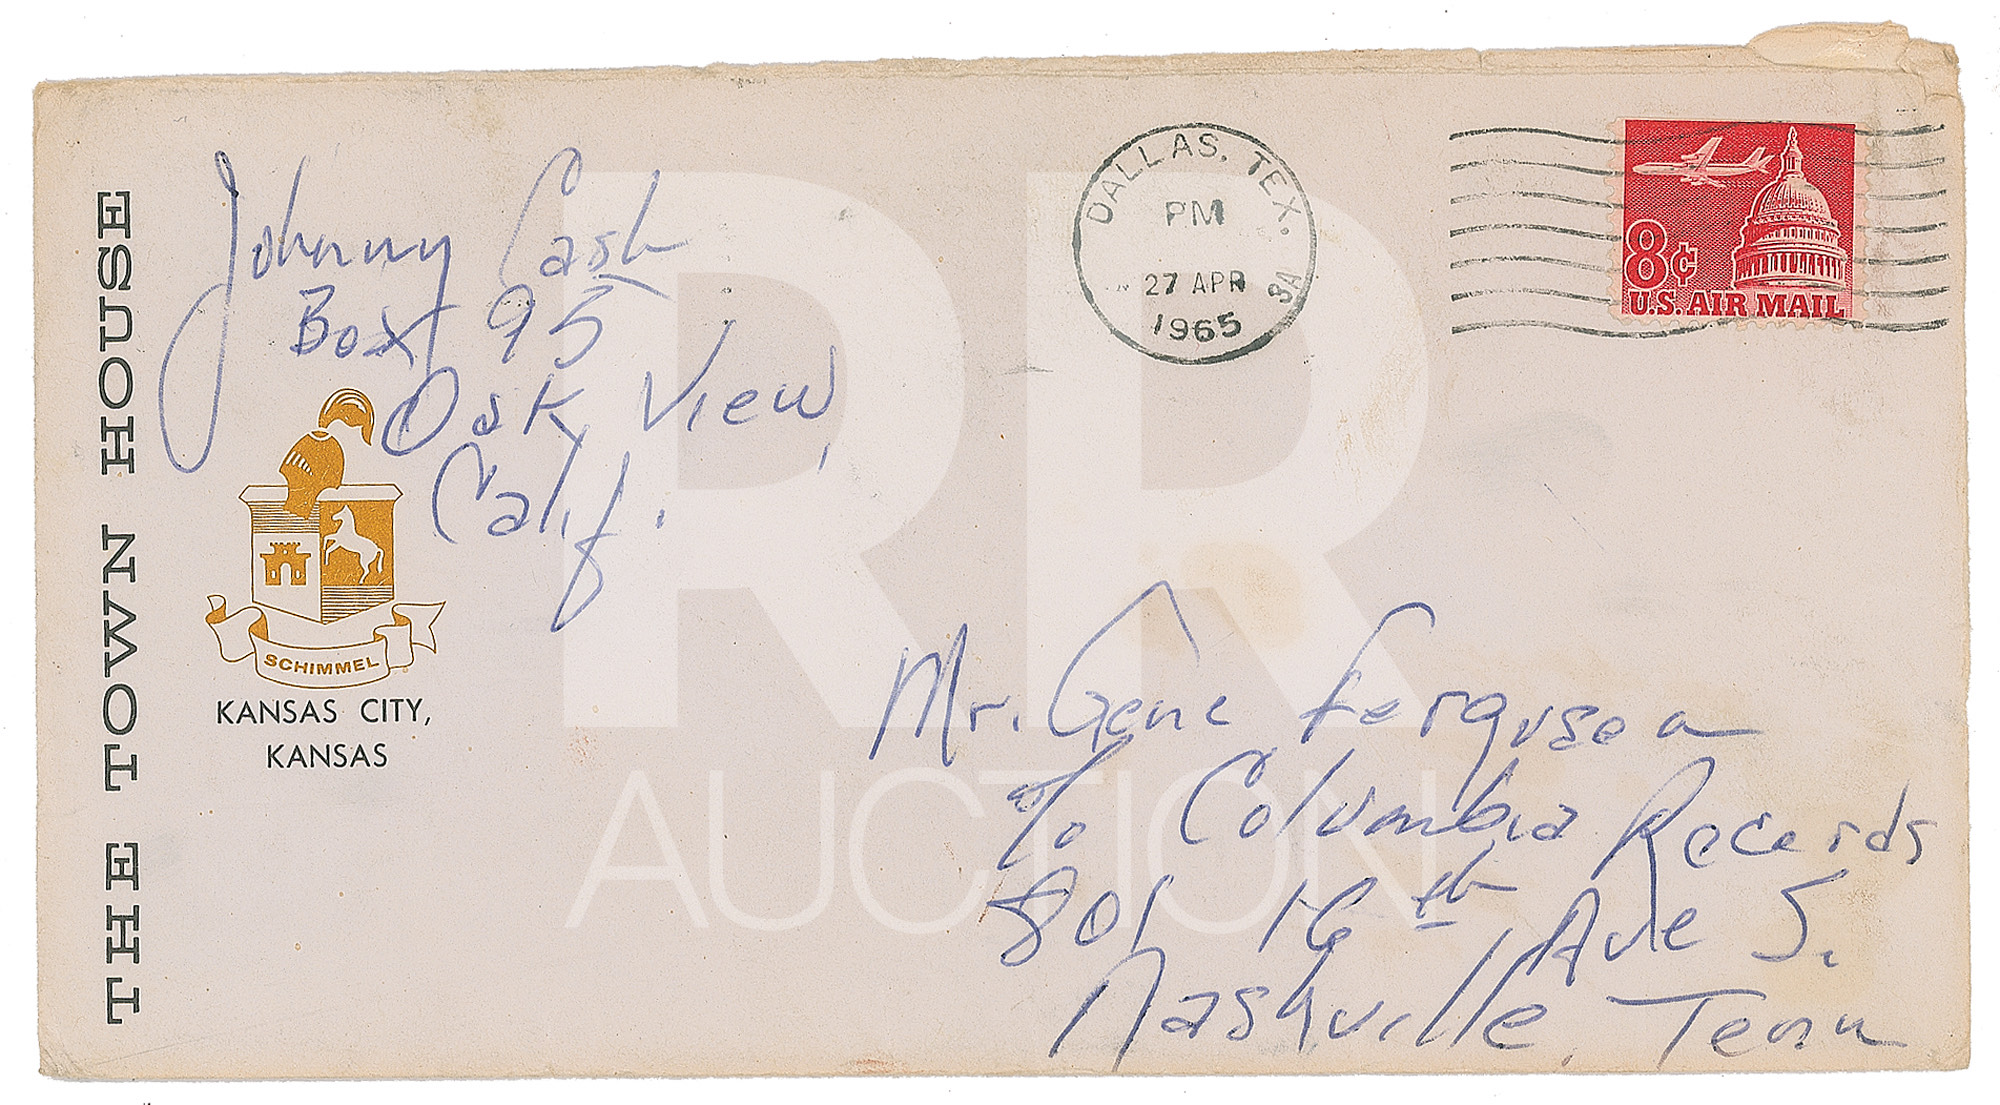 THE TOWN HOUSE
Johnny Cash
Box 95
Oak View,
Calif.
SCHIMMEL
KANSAS CITY,
KANSAS
DALLAS, TEX.
PM
27 APR
1965
8¢
U.S. AIR MAIL
Mr. Gene Ferguson
% Columbia Records
801 16th Ave S.
Nashville, Tenn
RR
AUCTION